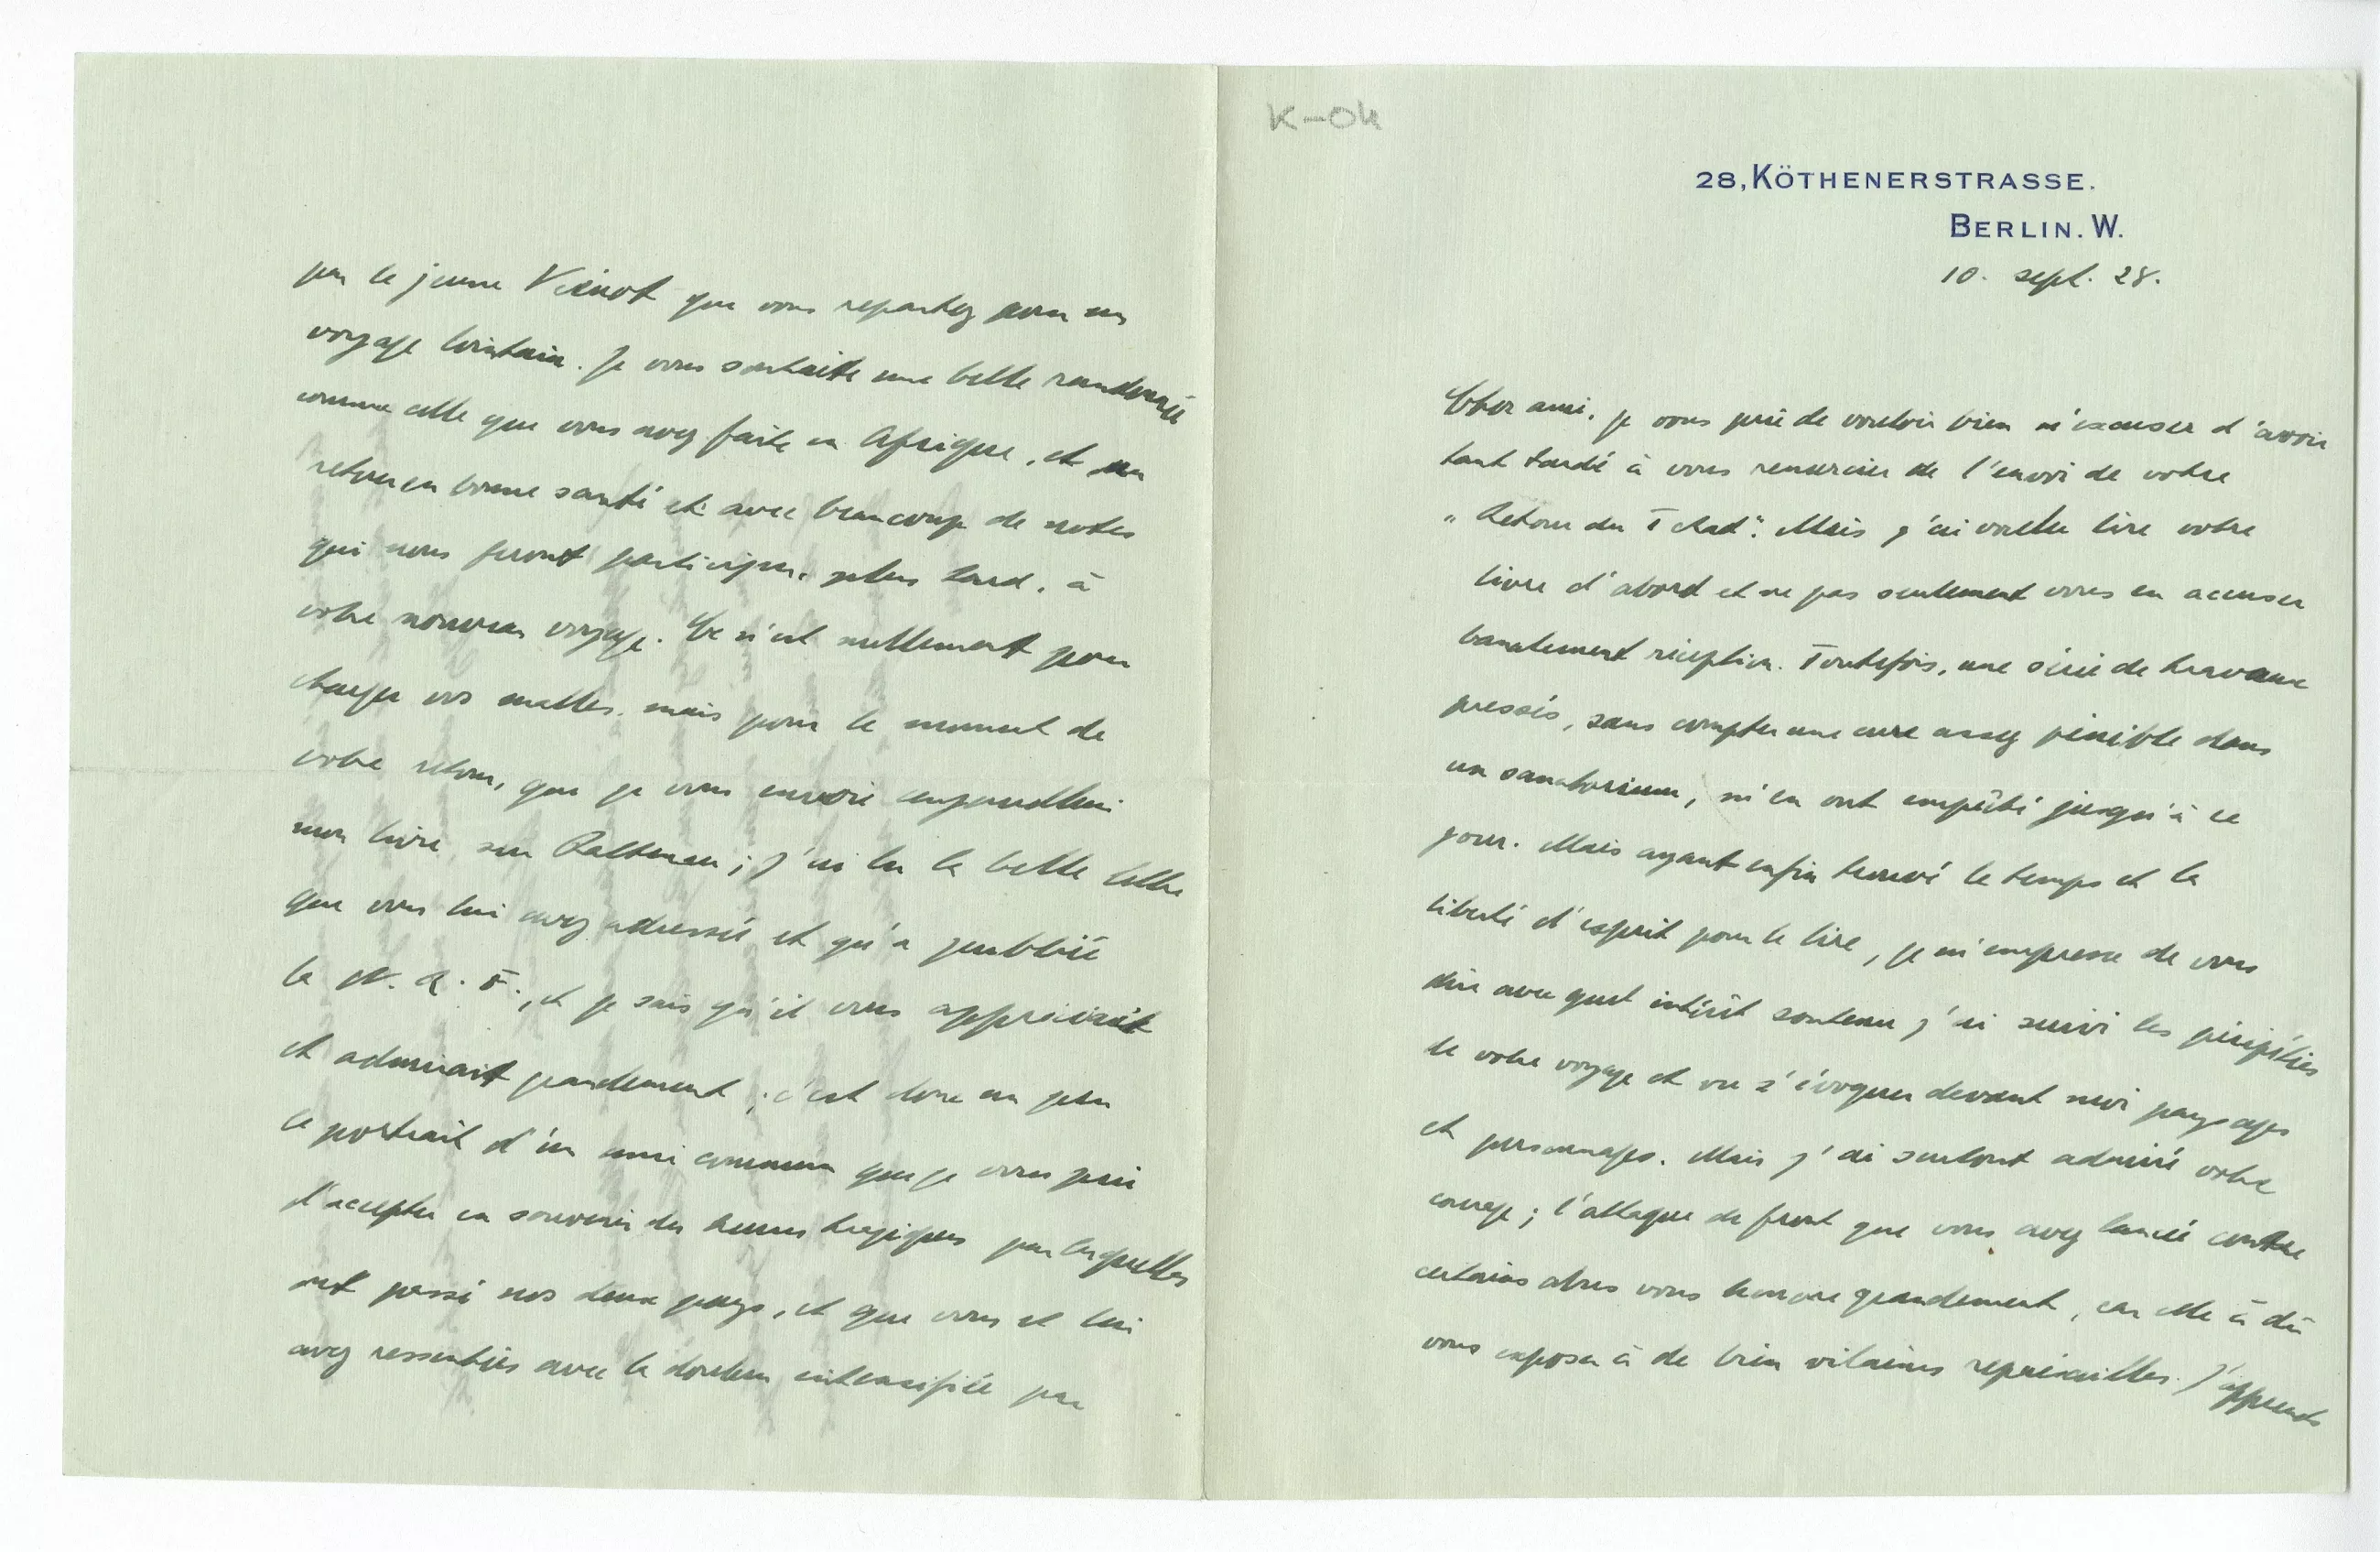 K-Ok
28, KÖTHENERSTRASSE.
BERLIN. W.
10. sept. 28.
Cher ami, je vous prie de vouloir bien m'excuser d'avoir
tant tardé à vous remercier de l'envoi de votre
„Retour du Tchad". Mais j'ai voulu lire votre
livre d'abord et ne pas seulement vous en accuser
banalement réception. Toutefois, une série de travaux
pressés, sans compter une cure assez pénible dans
un sanatorium, m'en ont empêché jusqu'à ce
jour. Mais ayant enfin trouvé le temps et la
liberté d'esprit pour le lire, je m'empresse de vous
dire avec quel intérêt soutenu j'ai suivi les péripéties
de votre voyage et vu s'évoquer devant moi paysages
et personnages. Mais j'ai surtout admiré votre
courage; l'attaque de front que vous avez lancée contre
certains abus vous honore grandement, car elle a dû
vous exposer à de bien vilaines représailles. J'apprends
par le jeune Viénot que vous repartez pour un
voyage lointain. Je vous souhaite une belle randonnée
comme celle que vous avez faite en Afrique, et un
retour en bonne santé et avec beaucoup de notes
qui nous feront participer, plus tard, à
votre nouveau voyage. Ce n'est nullement pour
charger vos malles, mais pour le moment de
votre retour, que je vous envoie aujourd'hui
mon livre sur Rathenau; j'ai lu la belle lettre
que vous lui avez adressée et qu'a publiée
la N. R. F., et je sais qu'il vous appréciait
et admirait grandement; c'est donc un peu
le portrait d'un ami commun que je vous prie
d'accepter en souvenir des heures tragiques par lesquelles
ont passé nos deux pays, et que vous et lui
avez ressenties avec la douleur intensifiée par